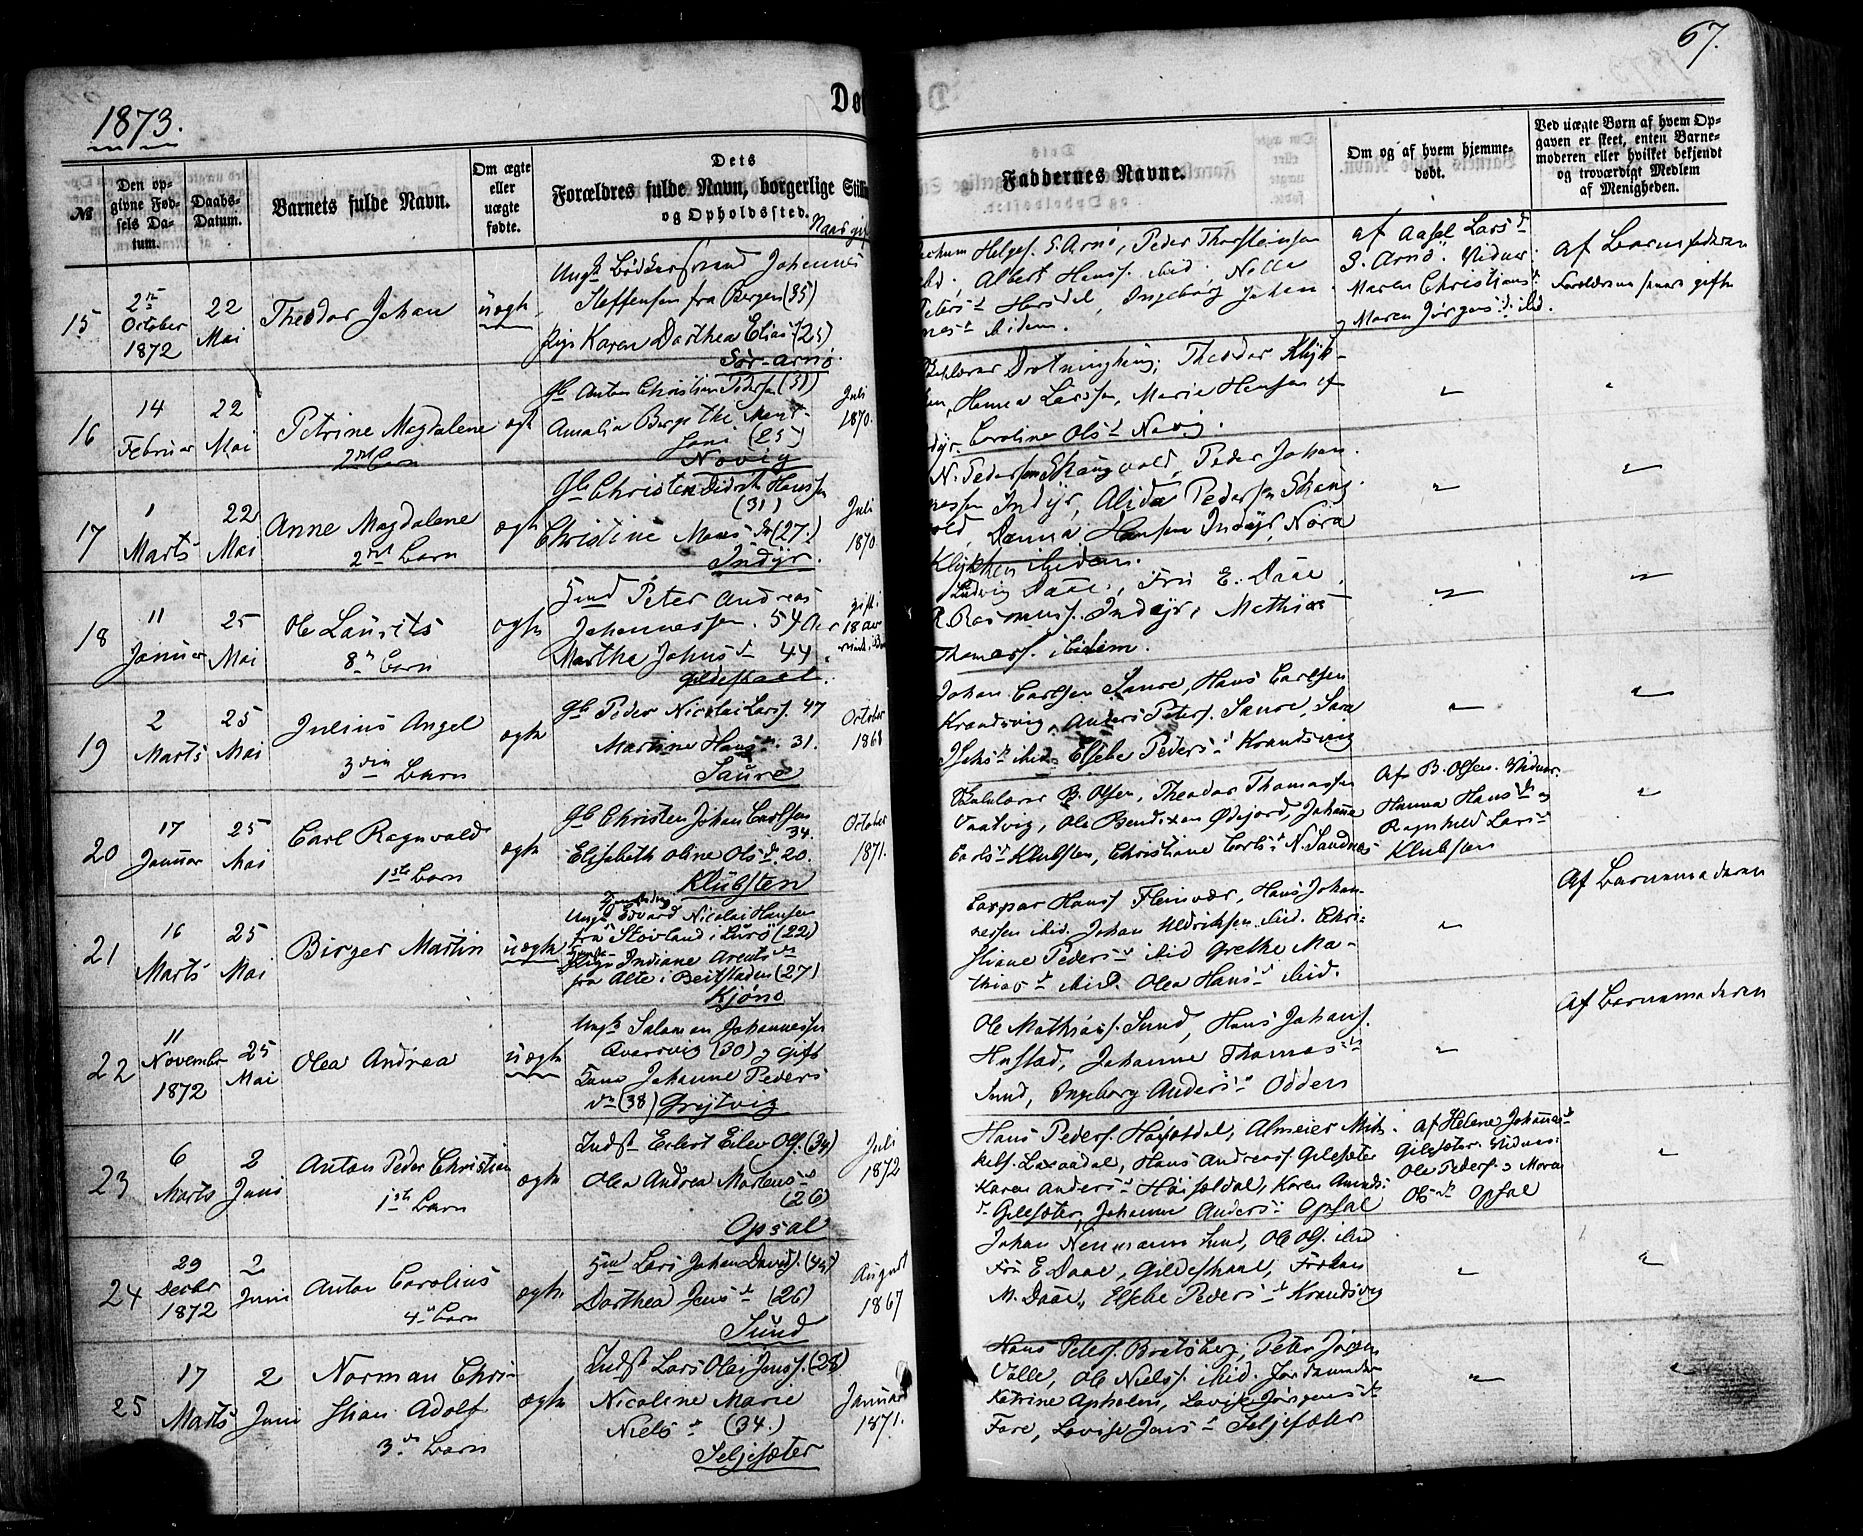 67.
1873.
Dø
№
Den op-
givne Fød-
sels Da-
tum.
Daabs-
Datum.
Barnets fulde Navn.
Om ægte
eller
uægte
fødte.
Dets
Forældres fulde Navn, borgerlige Still
og Opholdssted.
Naar gif
Faddernes Navne.
Om og af hvem hjemme-
døbt.
Ved uægte Børn af hvem Op-
gaven er skeet, enten Barne-
moderen eller hvilket bekjendt
og troværdigt Medlem
af Menigheden.
15
October
1872
22
Mai
Theodor Johan
uægte
Johannes
Steffensen fra Bergen (35)
Pige Karen Dorthea Elias (25)
Sør-Arnø
Helges. S. Arnø, Peder Thorstensen
Albert Hanss. ibid.
Ingeborg Johan
nesd ibidem.
af Aasel Larsd
S. Arnø. Vidner
Maren Christiansd
Maren Jørgensd. ibid.
Af Barnefaderen
Forældrene senere gifte
16
14
Februar
22
Mai
Petrine Magdalene
2det Barn
ægte
Gb Anton Christian Peders (31)
Amalia
(25)
Novig
Juli
1870.
Drotninghaug, Theodor Klyk-
en, Hanna Larssen, Marie Hansen af
Caroline Olsd Novig.
17
1
Marts
22
Mai
Anne Magdalene
2det Barn
ægte
Gb Christen Didrik Hanssen
(31)
Christine Mons D (27.)
Indyr.
Juli
1870
N. Pedersen Skaugvold, Peder Johan
nessen Indyr, Alida Pedersen Skaug
vold, Danna Hansen Indyr, Nora
Klykken ibidem.
18
11
Januar
25
Mai
Ole Laurits
8de Barn
ægte
Peter Andreas
Johannessen. 54 Aar
Martha Johns d 44
Gildeskaal.
gift i
18
Ludvig Daae, Fru E. Daae
R. Rasmuss. Indyr, Mathias
Thomass. ibidem.
19
2
Marts
25
Mai
Julius Angel
3die Barn
ægte
Gb Peder Nicolai Larss. 47
Martine Hansd. 31.
Saura
October
1868
Johan Carlsen Saure, Hans Carlsen
Krandsvig, Anders Peters. Saure, Sara
ibid. Elsebe Pedersd Krandsvig
20
17
Januar
25
Mai
Carl Ragnvald
1ste Barn
ægte
Gb Christen Johan Carlsen
34.
Elisabeth Oline Olsd. 20.
Klubsten
October
1871.
B. Olsen, Theodor Thomassen
Vaatvig, Ole Bendixen Ødejord, Johanna
Carlsd Klubsten, Christiane Carlsd N. Sandnes
Af B. Olsen. Vidner
Hanna Hansd og
Ragnhild Larsd
Klubsten
21
16
Marts
25
Mai
Birger Martin
uægte
Ungk Edvard Nicolai Hansen
fra Støvland i Lurø (22)
Pige Indiane Arentsd
fra Alte i Beitstaden (27)
Kjøno
Caspar Hanss Fleinvær, Hans Johan-
nessen ibid. Johan Hedriksen ibid. Chri-
stiane Pedersd ibid Grethe Ma-
thiasd ibid. Olea Hansd ibid.
Af Barnemoderen
22
11
November
1872
25
Mai
Olea Andrea
uægte
Ungk Salamon Johannessen
Qvarsvig (30) og gift
Kone Johanne Peders
d (38) Grejtvig
Ole Mathias. Sund, Hans Johans.
Hustad, Johanne Thomasd
Sund, Ingeborg Andersd Odden
Af Barnemoderen
23
6
Marts
2
Juni
Anton Peder Christian
1ste Barn
ægte
Indst Edvart Eilev Ols. (34)
Olea Andrea Mortensd
(26)
Opsal
Juli
1872
Hans Peders. Høiseldal, Almeier Mik-
kels. Laxaadal, Hans Andreass Gilesæter
Karen Andersd Høiseldal, Karen Amunds
d. Gilesæter, Johanna Andersd Opsal
Af Helene Johannesd
Gilesæter. Vidner:
Ole Peders. og Mora
Olsd Opsal
24
29
Decbr
1872
2
Juni
Anton Carolius
4de Barn
ægte
Lars Johan Davids. (44)
Dorthea Jensd (26)
Sund
August
1867
Johan Neumann Sund, Ole Ols. ibid
Fru E Daae, Gildeskaal, Frøken
M. Daae, Elsebe Pedersd Krandsvig
25
17
Marts
2
Juni
Norman Chri-
stian Adolf
3de Barn
ægte
Indst Lars Olai Jenss. (28)
Nicoline Marie
Nielsd (34.)
Seljesæter
Januar
1871.
Hans Peters. Bratsberg, Peter Jørgen
Valle, Ole Nielss. ibid. Jordemoder
Katrine Apholm, Lovise Jørgensd
Fore, Lovise Jensd Seljesæter